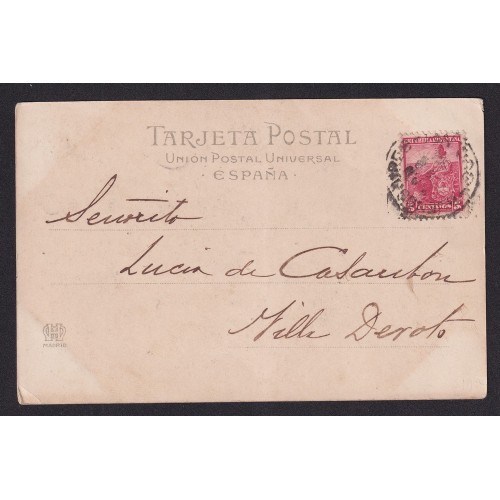 TARJETA POSTAL
UNIÓN POSTAL UNIVERSAL
· ESPAÑA ·
5 CENTAVOS 5
Señorita
Lucia de Casaubon
Villa Devoto
MADRID